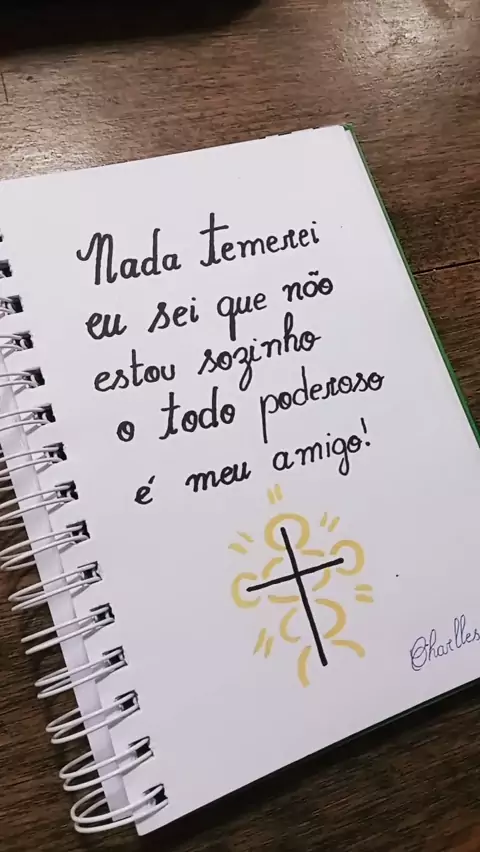 Nada temerei
eu sei que não
estou sozinho
o todo poderoso
é meu amigo!
Charlles